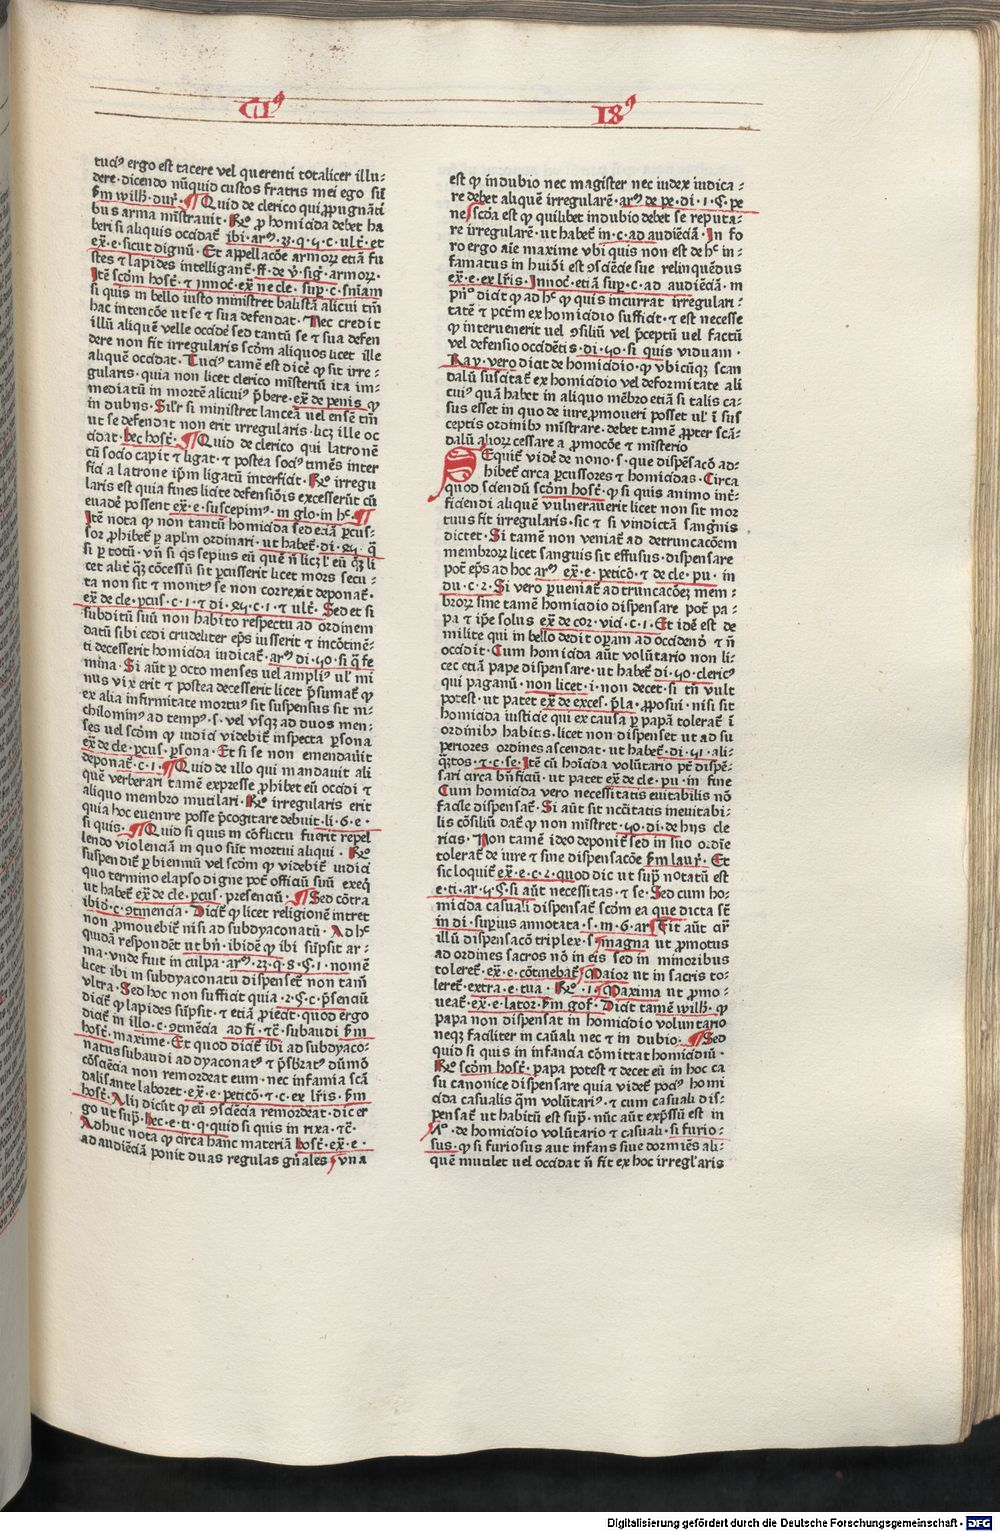 tuci⁹ ergo est tacere vel querenti totaliter illu-
dere·dicendo nũquid custos fratris mei ego sũ
ẜm wilħ·dur̃· ¶ Quid de clerico qui ꝓpugnãti
bus arma mĩstrauit· Rᵒ ꝓ homicida debet ha
beri si aliquis occidať ibi·arᵐ·23·q·5·c·ulť·et
ex̃·e·sicut dignũ· Et appellacõe armoꝝ etiã fu
stes ⁊ lapides intelliganť·ff·de v̾·sig̃·armoꝝ·
Itẽ scðm hosť·⁊ ĩnoc̃·ex̃ ne cle·sup̱·c·snĩam
si quis in bello iusto ministret balistã alicui tm̃
hac intencõe ut se ⁊ sua defendat· Nec credit
illũ aliquẽ velle occidẽ sed tantũ se ⁊ sua defen
dere non fit irregularis scðm aliquos licet ille
aliquẽ occidat· Tuci⁹ tamẽ est dicẽ ꝙ sit irre-
gularis·quia non licet clerico mĩsteriũ ita im-
mediatũ in mortẽ alicui⁹ p̃bere·ex̃ de penis ꝙ
in dubijs· Sil'r si ministret lanceã uel ensẽ tm̃
ut se defendat non erit irregularis·licꝫ ille oc
cidat·hec hosť· ¶ Quid de clerico qui latronẽ
cũ socio capit ⁊ ligat·⁊ postea soci⁹ timẽs inter
fici a latrone ip̃m ligatũ interficit· Rᵒ irregu
laris est quia fines licite defensiõis excesserũt cũ
euadẽ possent ex̃·e·suscepim⁹·in glo·in hᶜ· ¶
Itẽ nota ꝙ non tantũ homicida sed etiã p̱cus-
sor ꝓhibeť p̱ ap̃lm ordinari·ut habeť·di·45·q̃
si p̱ totũ· vñ si qͥs sepius eũ quẽ ñ licꝫ l' eũ qꝫ li
cet aliť qꝫ cõcessũ sit p̱cusserit licet mors secu-
ta non sit ⁊ monit⁹ se non correxit deponať·
ex̃ de cle·p̱cus·c·1·⁊ di·45·c·1·⁊ ulť· Sed et si
subditũ suũ non habito respectu ad ordinem
datũ sibi cedi crudeliter ep̃s iusserit ⁊ incõtinẽ-
ti decesserit homicida iudicať·arᵐ di·50·si q̃ fe
mina· Si aũt p̱ octo menses uel ampli⁹ ul' mi
nus vixerit ⁊ postea decesserit licet p̃sumať ꝙ
ex alia infirmitate mortu⁹ sit suspensus sit ni-
chilomin⁹ ad temp⁹·s·vel vsqꝫ ad duos men-
ses uel scðm ꝙ iudici videbiť inspecta p̱sona
ex̃ de cle·p̱cus·p̱sona· Et si se non emendauit
deponať·c·1· ¶ Quid de illo qui mandauit ali
quẽ verberari tamẽ expresse ꝓhibet eũ occidi ⁊
aliquo membro mutilari· Rᵒ irregularis erit
quia hoc euenire posse p̃cogitare debuit·li·6·e·
si quis· ¶ Quid si quis in cõflictu fuerit repel
lendo violenciã in quo sũt mortui aliqui· Rᵒ
suspendiť p̱ bienniũ vel scðm ꝙ videbiť iudici
quo termino elapso digne poť officiũ suũ exeq̃
ut habeť ex̃ de cle·p̱cus·presenciũ· ¶ Sed cõtra
ibid·c·ↄtinencia· Diciť ꝙ licet religionẽ intret
non ꝓmouebiť nisi ad subdyaconatũ· Ad hᶜ
quidã respondẽt ut bñ·ibidẽ ꝙ ibi sũpsit ar-
ma·vnde fuit in culpa·arᵐ·23·q·8·C·1·nomẽ
licet ibi in subdyaconatu dispenseť non tam̃
vltra· Sed hoc non sufficit quia·2·C·c·p̃senciũ
diciť ꝙ lapides sũpsit·⁊ etiã ꝓiecit·quod ergo
diciť in illo·c·ↄtinẽcia ad fi·⁊c̃·subaudi ẜm
hosť·maxime· Et quod diciť ibi ad subdyaco-
natus subaudi ad dyaconat⁹ ⁊ p̃sbiraf⁹ dũmõ
cõsciẽcia non remordeat eum·nec infamia scã
dalisante laboret·ex̃·e·peticõ·⁊·c·ex lr̃is·ẜm
hosť· Alij dicũt ꝙ eũ ↄsciẽcia remordeat·dic er
go ut sup̱·hec·e·ti·q·quid si quis in rixa·⁊c̃·
Adhuc nota ꝙ circa hanc materiã hosť·ex̃·e·
ad audiẽciã ponit duas regulas gñales / vna
est ꝙ in dubio nec magister nec iudex iudica-
re debet aliquẽ irregularẽ·arᵐ de pe·di·1·C·pe
ne / scða est ꝙ quilibet in dubio debet se reputa-
re irregularẽ·ut habeť in·c·ad audiẽciã· In fo
ro ergo aĩe maxime vbi quis non est de hᶜ in-
famatus in huiõi est ↄsciẽcie sue relinquẽdus
ex̃·e·ex lr̃is· Innoc̃·etiã sup̱·c·ad audiẽciã·in
pñ° dicit ꝙ ad hᶜ ꝙ quis incurrat irregulari-
tatẽ ⁊ pctm̃ ex homicidio sufficit·⁊ est necesse
ꝙ interuenerit vel ↄsiliũ vel p̃ceptũ uel factũ
vel defensio occidẽtis·di·50·si quis viduam·
Ray·vero dicit de homicidio·ꝙ vbicũqꝫ scan
dalũ suscitať ex homicidio vel deformitate ali
cui⁹ quã habet in aliquo mẽbro etiã si talis ca-
sus esset in quo de iure·ꝓmoueri posset ul' ĩ sus
ceptis ordinibꝫ mĩstrare·debet tamẽ ꝓpter scã-
dalũ alioꝝ cessare a ꝓmocõe ⁊ mĩsterio
SEquiť videẽ de nono·s·que dispẽsacõ ad-
hibeť circa p̱cussores ⁊ homicidas· Circa
quod sciendũ scðm hosť·ꝙ si quis animo inť-
ficiendi aliquẽ vulnerauerit licet non sit mor
tuus fit irregularis·sic ⁊ si vindictã sangnis
dictet· Si tamẽ non veniať ad detruncacõem
membroꝝ licet sanguis sit effusus·dispensare
poť ep̃s ad hoc arᵐ ex̃·e·peticõ·⁊ de cle·pu·in
du·c·2· Si vero p̱ueniať ad truncacõeꝫ mem-
broꝝ sine tamẽ homicidio dispensare poť pa-
pa ⁊ ip̃e solus ex̃ de cor·vici·c·1· Et idẽ est de
milite qui in bello dedit op̱am ad occidenð ⁊ ñ
occidit· Cum homicida aũt volũtario non li-
cec etiã pape dispensare·ut habeť di·50·cleric⁹
qui paganũ·non licet·i·non decet·si tñ vult
potest·ut patet ex̃ de exces·p̃la·ꝓposui·nisi sit
homicida iusticie qui ex causa p̱ papã tolerať ĩ
ordinibꝫ habitis·licet non dispenset ut ad su
periores ordines ascendat·ut habeť·di·51·ali-
qͣntos·⁊·c·se· Itẽ cũ hoĩcida volũtario pť dispẽ-
sari circa bñficiũ·ut patet ex̃ de cle·pu·in fine
Cum homicida vero necessitatis euitabilis nõ
facile dispensať· Si aũt sit nc̃citatis ineuitabi-
lis cõsiliũ dať ꝙ non mĩstret·50·di·de hijs cle
ricis· Non tamẽ ideo deponiť sed in suo ordĩe
tolerať de iure ⁊ sine dispensacõe ẜm laur̃· Et
sic loquiť ex̃·e·c·2·quod dic ut sup̱ notatũ est
e·ti·ar·5·C·si aũt necessitas·⁊ se· Sed cum ho-
micida casuali dispensať scðm ea que dicta sť
in di·supius annotata·s·m·6·ar / Fit aũt cir̃
illũ dispensacõ triplex·s / magna ut ꝓmotus
ad ordines sacros nõ in eis sed in minoribus
tolereť·ex̃·e·cõtinebať / Maior ut in sacris to-
lereť·extra·e·tua· Rᵒ·1· / Maxima ut ꝓmo-
ueať·ex̃·e·lator·ẜm gof· Dicit tamẽ wilħ·ꝙ
papa non dispensat in homicidio voluntario
neqꝫ faciliter in casuali nec ⁊ in dubio· ¶ Sed
quid si quis in infancia cõmittat homicidiũ·
Rᵒ scðm hosť·papa potest ⁊ decet eũ in hoc ca
su canonice dispensare quia videť poci⁹ homi
cida casualis qͣm volũtari⁹·⁊ cum casuali dis-
pensať ut habitũ est sup̱·nũc aũt exp̃ssũ est in
A°·de homicidio volũtario ⁊ casuali·si furio-
sus·ꝙ si furiosus aut infans siue dormiẽs ali-
quẽ mutilet uel occidat ñ fit ex hoc irregl'aris
Digitalisierung gefördert durch die Deutsche Forschungsgemeinschaft - DFG